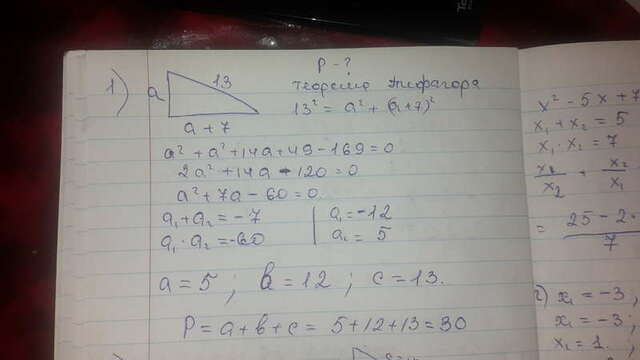 P - ?
1) a 13 Теорема Пифагора
a + 7 13² = a² + (a+7)²
a² + a² + 14a + 49 - 169 = 0
2a² + 14a - 120 = 0
a² + 7a - 60 = 0
a₁ + a₂ = - 7 | a₁ = - 12
a₁ · a₂ = -60 | a₂ = 5
a = 5 ; b = 12 ; c = 13.
P = a + b + c = 5 + 12 + 13 = 30
x² - 5x + 7
x₁ + x₂ = 5
x₁ · x₂ = 7
x₂
= 25 - 2
7
2) x₁ = -3 ;
x₁ = -3 ;
x₂ = 1.